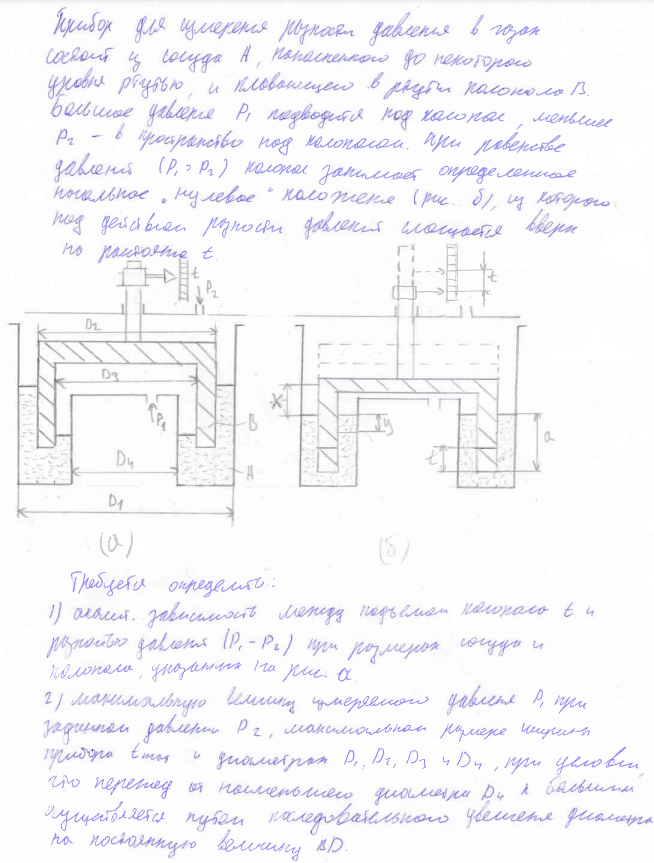 Прибор для измерения разности давления в газах
состоит из сосуда А, наполненного до некоторого
уровня ртутью, и плавающего в ртути колокола В.
Большое давление P₁ подводится под колокол, меньшее
P₂ - в пространство над колоколом. При равенстве
давлений (P₁ = P₂) колокол занимает определенное
начальное „нулевое" положение (рис. б), из которого
под действием разности давлений смещается вверх
на расстояние t.
t
P₂
t
D₂
D₃
P₁
B
D₄
A
D₁
x
y
t
a
(а)
(б)
Требуется определить:
1) аналит. зависимость между подъемом колокола t и
разностью давления (P₁ - P₂) при размерах сосуда и
колокола, указанных на рис. а.
2) максимальную величину измеряемого давления P₁ при
заданном давлении P₂, максимальном размере
прибора t max и диаметрах D₁, D₂, D₃ и D₄, при условии,
что переход от наименьшего диаметра D₄ к большим
осуществляется путем последовательного увеличения диаметра
на постоянную величину ΔD.